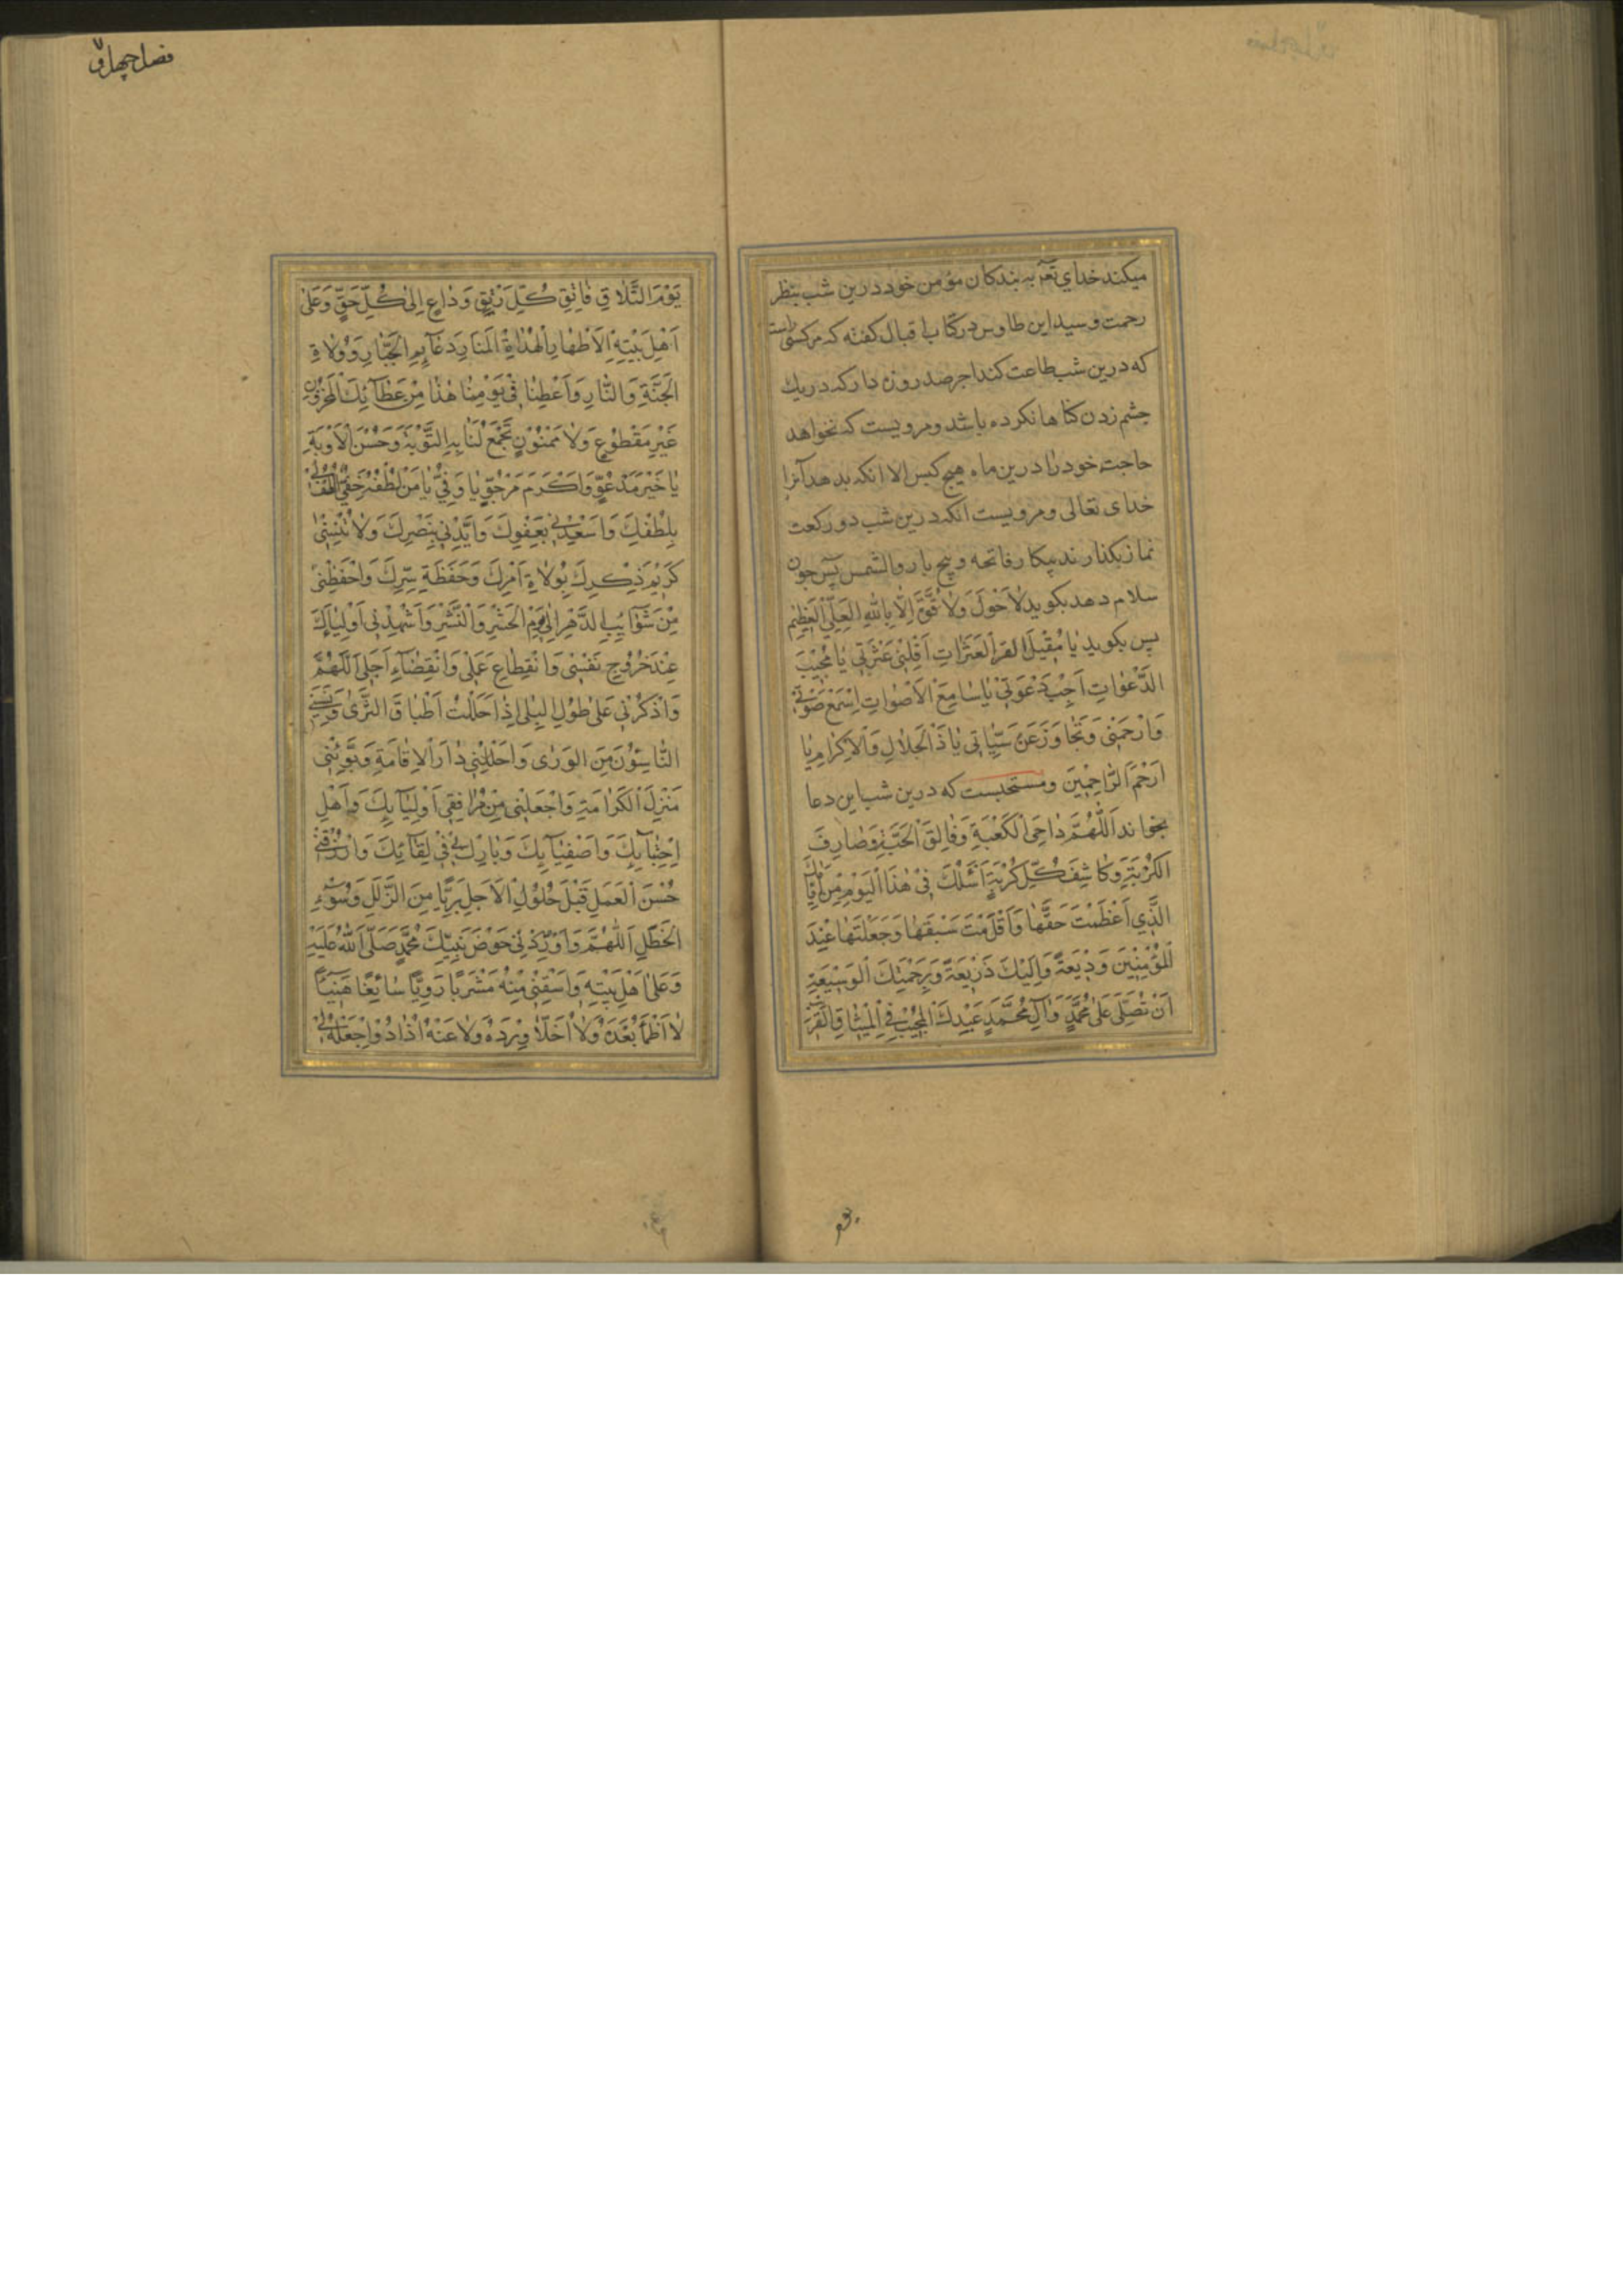 میکند خدای تعر به بندکان مؤمن خود درین شب بنظر
رحمت و سید ابن طاوس در کتاب اقبال کفته که هرکسی
که درین شب طاعت کند اجر صد روزه دار که در یك
چشم زدن کناهانکرده باشد و مرویست که نخواهد
حاجت خود را درین ماه هیچ کس الا انکه بدهد آنرا
خدای تعالی و مرویست انکه درین شب دو رکعت
نماز بکذارند بیکار فاتحه و پنج بار والشمس پس چون
سلام دهد بکوید لَا حَوْلَ وَلَا قُوَّةَ اِلَّا بِاللهِ الْعَلِیِّ الْعَظِیْم
پس بکوید یَا مُقِیْلَ الْعَثَرَاتِ اَقِلْنِیْ عَثْرَتِیْ یَا مُجِیْبَ
الدَّعْوَاتِ اَجِبْ دَعْوَتِیْ یَا سَامِعَ الْاَصْوَاتِ اِسْمَعْ صَوْتِیْ
وَارْحَمْنِیْ وَتَجَاوَزْ عَنْ سَیِّئَاتِی یَا ذَا الْجَلَالِ وَالْاِکْرَامِ یَا
اَرْحَمَ الرَّاحِمِیْنَ ومستحبست که درین شب این دعا
بخواند اَللّٰهُمَّ دَاحِیَ الْکَعْبَةِ وَفَالِقَ الْحَبَّةِ وَصَارِفَ
الْکُرْبَةِ وَکَاشِفَ کُلِّ کُرْبَةٍ اَسْئَلُكَ فِیْ هٰذَا الْیَوْمِ مِنْ اَیَّامِكَ
الَّذِی اَعْظَمْتَ حَقَّهَا وَاَقْدَمْتَ سَبْقَهَا وَجَعَلْتَهَا عِنْدَ
الْمُؤْمِنِیْنَ وَدِیْعَةً وَاِلَیْكَ ذَرِیْعَةً وَبِرَحْمَتِكَ الْوَسِیْعَةِ
اَنْ تُصَلِّیَ عَلیٰ مُحَمَّدٍ وَآلِ مُحَمَّدٍ عَبْدِكَ الْمُجِیْبِ فِی الْمِیْثَاقِ الْقَرِیْبِ
فصل چهل و
یَوْمَ التَّلَاقِ فَاتِقِ کُلِّ رَتْقٍ وَدَاعٍ اِلیٰ کُلِّ حَقٍّ وَعَلیٰ
اَهْلِ بَیْتِهِ الْاَطْهَارِ الْهُدَاةِ الْمَنَارِ دَعَآئِمِ الْجَبَّارِ وَوُلَاةِ
الْجَنَّةِ وَالنَّارِ وَاَعْطِنَا فِیْ یَوْمِنَا هٰذَا مِنْ عَطَآئِكَ الْمَخْزُوْنِ
غَیْرِ مَقْطُوْعٍ وَلَا مَمْنُوْنٍ تَجْمَعُ لَنَا بِهِ التَّوْبَةَ وَحُسْنَ الْاَوْبَةِ
یَا خَیْرَ مَدْعُوٍّ وَاَکْرَمَ مَرْجُوٍّ یَا وَفِیُّ یَا مَنْ لُطْفُهُ خَفِیٌّ اُلْطُفْ لِیْ
بِلُطْفِكَ وَاَسْعِدْنِیْ بِعَفْوِكَ وَاَیِّدْنِیْ بِنَصْرِكَ وَلَا تُنْسِنِیْ
کَرِیْمَ ذِکْرِكَ بِوُلَاةِ اَمْرِكَ وَحَفَظَةِ سِرِّكَ وَاحْفَظْنِیْ
مِنْ شَوَآئِبِ الدَّهْرِ اِلیٰ یَوْمِ الْحَشْرِ وَالنَّشْرِ وَاَشْهِدْنِیْ اَوْلِیَآئَكَ
عِنْدَ خُرُوْجِ نَفْسِیْ وَانْقِطَاعِ عَمَلِیْ وَانْقِضَآءِ اَجَلِیْ اَللّٰهُمَّ
وَاذْکُرْنِیْ عَلیٰ طُوْلِ الْبِلیٰ اِذَا حَلَلْتُ اَطْبَاقَ الثَّرٰی وَنَسِیَنِی
النَّاسُوْنَ مِنَ الْوَرٰی وَاَحْلِلْنِیْ دَارَ الْاِقَامَةِ وَبَوِّئْنِیْ
مَنْزِلَ الْکَرَامَةِ وَاجْعَلْنِیْ مِنْ مُرَافِقِیْ اَوْلِیَآئِكَ وَاَهْلِ
اِجْتِبَآئِكَ وَاَصْفِیَآئِكَ وَبَارِكْ لِیْ فِیْ لِقَآئِكَ وَارْزُقْنِیْ
حُسْنَ الْعَمَلِ قَبْلَ حُلُوْلِ الْاَجَلِ بَرِیًّا مِنَ الزَّلَلِ وَسُوْءِ
الْخَطَلِ اَللّٰهُمَّ وَاَوْرِدْنِیْ حَوْضَ نَبِیِّكَ مُحَمَّدٍ صَلَّی اللهُ عَلَیْهِ
وَعَلیٰ اَهْلِ بَیْتِهِ وَاسْقِنِیْ مِنْهُ مَشْرَبًا رَوِیًّا سَائِغًا هَنِیْئًا
لَا اَظْمَأُ بَعْدَهُ وَلَا اُحَلَّأُ وِرْدَهُ وَلَا عَنْهُ اُذَادُ وَاجْعَلْهُ لِیْ